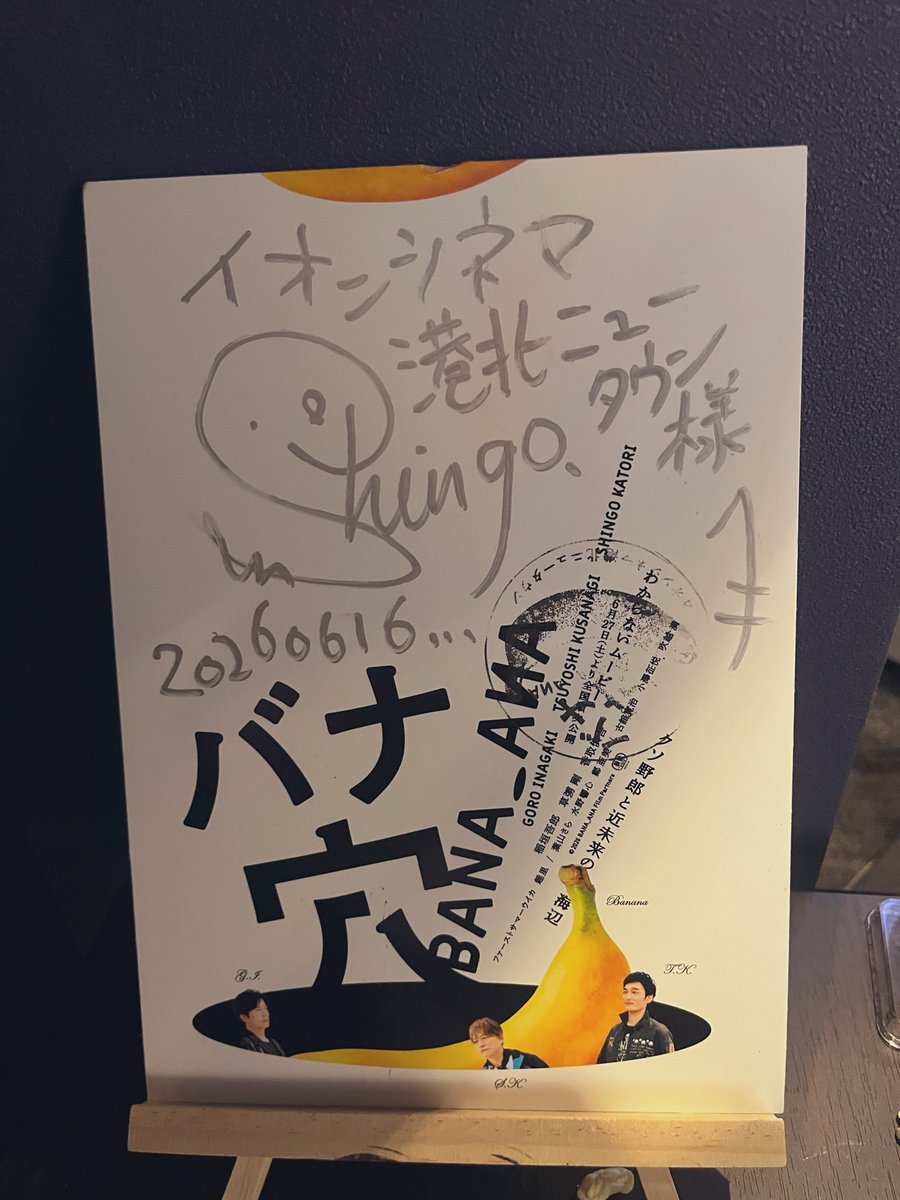 イオンシネマ
港北ニュー
タウン
様
Shingo.
20260616...
バナ
穴
BANA_ANA
GORO INAGAKI
TSUYOSHI KUSANAGI
SHINGO KATORI
わからないムービー
6月27日(土)より全国
公開
クソ野郎と近未来の
海辺
稲垣吾郎 草彅剛
ファーストサマーウイカ
©2026 BANA_ANA Film Partners
Banana
G.I.
T.K.
S.K.